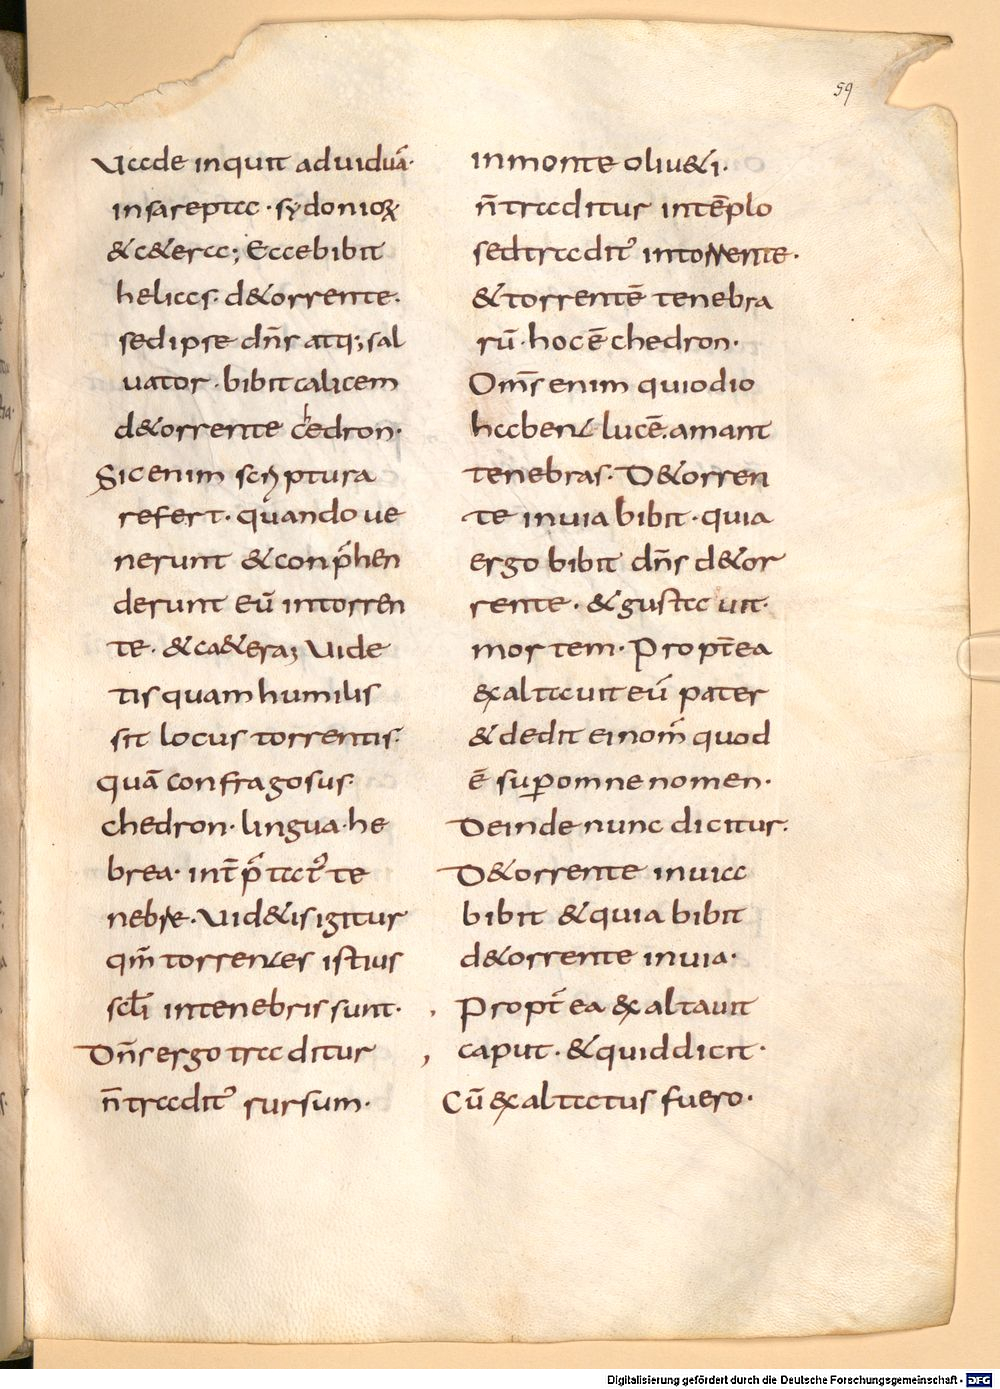 59
Uade inquit ad uiduā·
in sareptae · sydonioꝝ
& c&era; Ecce bibit
helias· de torrente·
sed ipse dn̄s atq; sal
uator · bibit calicem
de torrente cedron·
Sic enim scriptura
refert · quando ue
nerunt & conp̄hen
derunt eū in torren
te · & ca&era; Uide
tis quam humilis
sit locus torrentis·
quā confragosus·
chedron · lingua · he
brea · int̄p̄tat᷒ te
nebre · Uid&is igitur
qm̄ torrentes istius
scl̄i in tenebris sunt·
Dn̄s ergo traditur
n̄ tradit᷒ sursum·
in monte oliu&i·
n̄ traditur in tēplo
sed tradit᷒ in torrente·
& torrentē tenebra
rū · hoc ē chedron·
Om̄s enim qui odio
habent lucē · amant
tenebras · De torren
te in uia bibit · quia
ergo bibit dn̄s de tor
rente · & gustauit·
mortem · Propt̄ea
exaltauit eū pater
& dedit ei nom̄ quod
ē suꝑ omne nomen·
Deinde nunc dicitur·
De torrente in uia
bibit & quia bibit
de torrente in uia·
Propt̄ea exaltauit
caput · & quid dicit·
Cū exaltatus fuero·
Digitalisierung gefördert durch die Deutsche Forschungsgemeinschaft - DFG